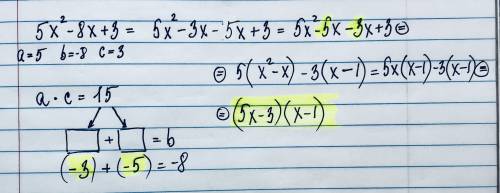 5x²-8x+3 = 5x²-3x-5x+3 = 5x²-5x-3x+3 =
a=5 b=-8 c=3
= 5(x²-x)-3(x-1) = 5x(x-1)-3(x-1) =
a·c = 15
= (5x-3)(x-1)
□ + □ = b
(-3)+(-5) = -8